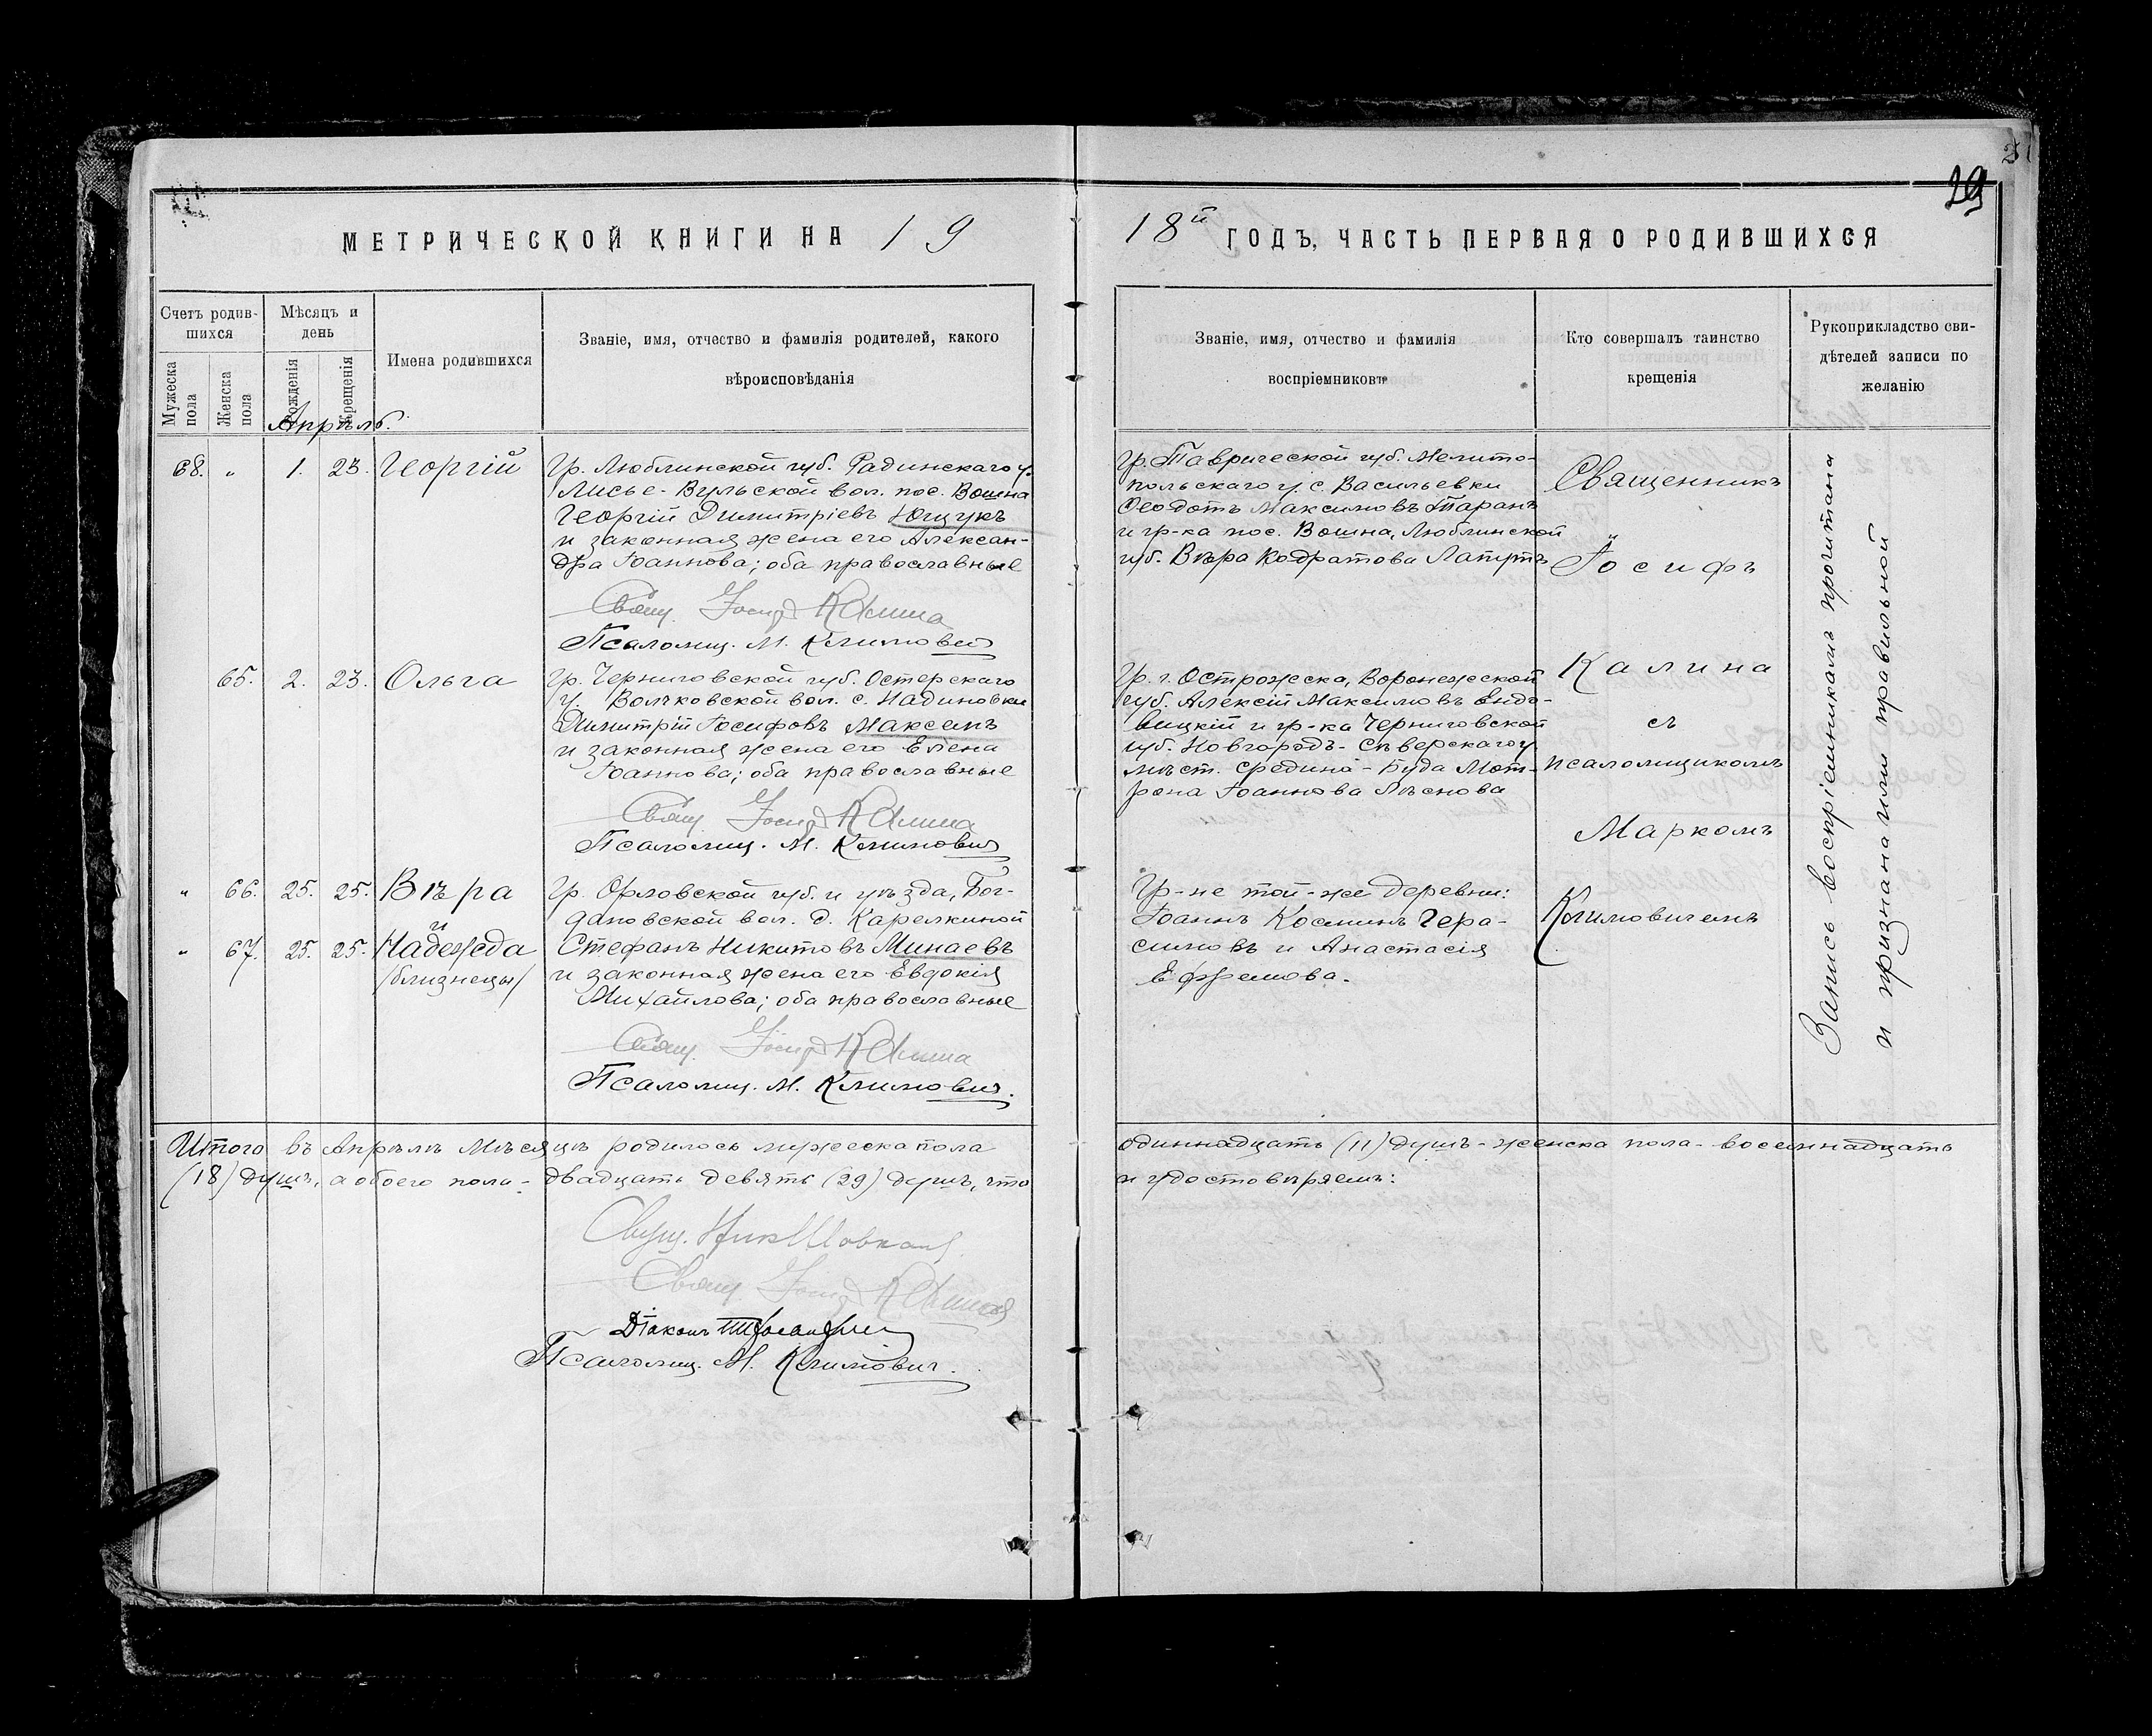 29
МЕТРИЧЕСКОЙ КНИГИ НА 19
18й ГОДЪ, ЧАСТЬ ПЕРВАЯ О РОДИВШИХСЯ
Счетъ родив-
шихся
Мужеска
пола
Женска
пола
Мѣсяцъ и
день
Рожденія
Крещенія
Имена родившихся
Званіе, имя, отчество и фамилія родителей, какого
вѣроисповѣданія
Званіе, имя, отчество и фамилія
воспріемниковъ
Кто совершалъ таинство
крещенія
Рукоприкладство сви-
дѣтелей записи по
желанію
Апрѣль.
68. " 1. 23. Георгій
Гр. Люблинской губ. Радинскаго у.
Лисье-Вульской вол. пос. Вошна
Георгій Димитріевъ Ющукъ
и законная жена его Алексан-
дра Іоаннова; оба православные
Свящ. Іосиф Калина
Псаломщ. М. Климович
Гр. Таврической губ. Мелито-
польскаго у. с. Васильевки
Ѳеодотъ Максимовъ Таранъ
и гр-ка пос. Вошна, Люблинской
губ. Вѣра Кодратова
65. 2. 23. Ольга
Гр. Черниговской губ. Остерскаго
у. Волчковской вол. с. Надиновки
Димитрій Іосифовъ Максемъ
и законная жена его Елена
Іоаннова; оба православные
Свящ. Іосиф Калина
Псаломщ. М. Климович
Гр. г. Острожска, Воронежской
губ. Алексій Максимовъ Ендо-
вицкій и гр-ка Черниговской
губ. Новгородъ-Сѣверскаго у.
мѣст. Средина-Буда Мот-
рона Іоаннова Лѣснова
" 66. 25. 25. Вѣра
и
" 67. 25. 25. Надежда
/близнецы/
Гр. Орловской губ. и уѣзда, Бог-
дановской вол. д. Карелкиной
Стефанъ Никитовъ Минаевъ
и законная жена его Евдокія
Михайлова; оба православные
Свящ. Іосиф Калина
Псаломщ. М. Климович.
Гр-не той-же деревни:
Іоаннъ Косминъ Гера-
симовъ и Анастасія
Ефремова.
Священникъ
Іосифъ
Калина
съ
псаломщикомъ
Маркомъ
Климовичемъ
Запись воспріемникамъ прочитана
и признана ими правильной
Итого въ Апрѣлѣ мѣсяцѣ родилось мужеска пола
одиннадцать (11) душъ - женска пола - восемнадцать
(18) душъ, а обоего пола - двадцать девять (29) душъ, что
и удостовѣряемъ:
Свящ. Ник
Свящ. Іосиф Калина
Діаконъ
Псаломщ. М. Климович.